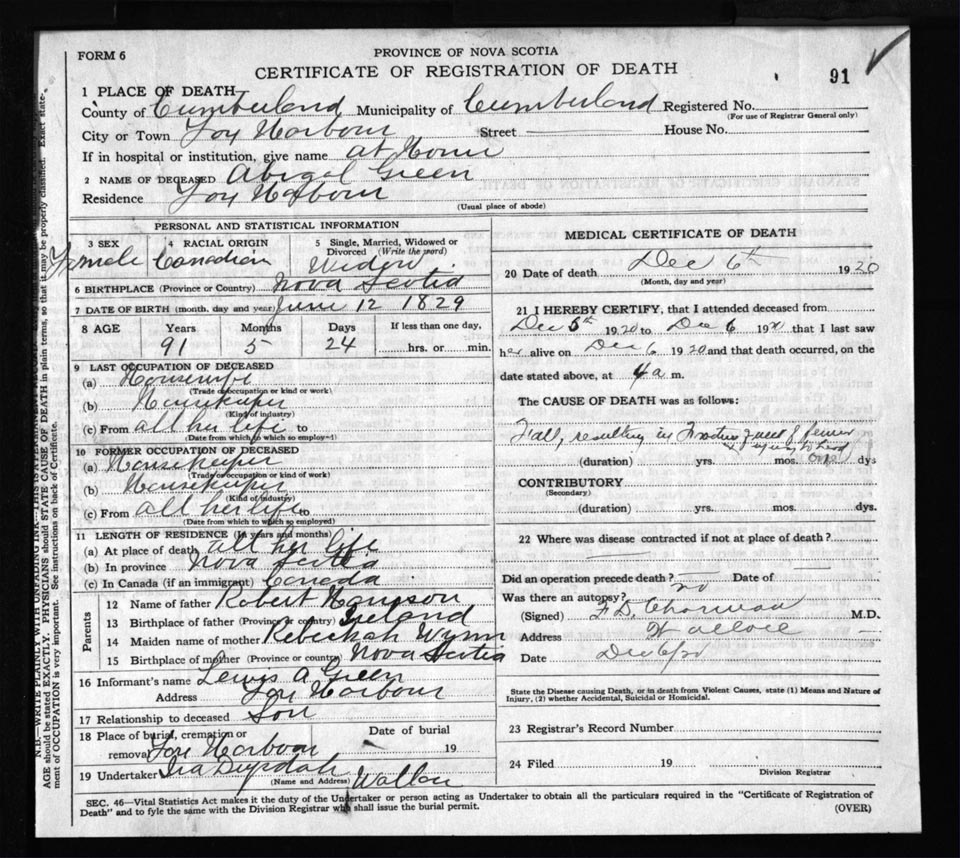 FORM 6
PROVINCE OF NOVA SCOTIA
CERTIFICATE OF REGISTRATION OF DEATH
91
1 PLACE OF DEATH
County of Cumberland Municipality of Cumberland Registered No.
(For use of Registrar General only)
City or Town Fox Harbour Street House No.
If in hospital or institution, give name at Home
2 NAME OF DECEASED Abigal Green
Residence Fox Harbour
(Usual place of abode)
PERSONAL AND STATISTICAL INFORMATION
3 SEX 4 RACIAL ORIGIN 5 Single, Married, Widowed or Divorced (Write the word)
Female Canadian Widow
6 BIRTHPLACE (Province or Country) Nova Scotia
7 DATE OF BIRTH (month, day and year) June 12 1829
8 AGE Years Months Days If less than one day,
91 5 24 hrs. or min.
9 LAST OCCUPATION OF DECEASED
(a) Housewife
(Trade occupation or kind or work)
(b) Housekeeper
(Kind of industry)
(c) From all her life to
(Date from which to which so employed)
10 FORMER OCCUPATION OF DECEASED
(a) Housekeeper
(Trade or occupation or kind of work)
(b) Housekeeper
(Kind of industry)
(c) From all her life to
(Date from which to which so employed)
11 LENGTH OF RESIDENCE (In years and months)
(a) At place of death all her life
(b) In province Nova Scotia
(c) In Canada (if an immigrant) Canada
Parents
12 Name of father Robert
13 Birthplace of father (Province or country) Ireland
14 Maiden name of mother Rebeckah Wynn
15 Birthplace of mother (Province or country) Nova Scotia
16 Informant's name Lewis A Green
Address Fox Harbour
17 Relationship to deceased Son
18 Place of burial, cremation or removal Fox Harbour Date of burial 19
19 Undertaker Ira
(Name and Address)
MEDICAL CERTIFICATE OF DEATH
20 Date of death Dec 6th 1920
(Month, day and year)
21 I HEREBY CERTIFY, that I attended deceased from
Dec 5th 1920 to Dec 6 1920 that I last saw
her alive on Dec 6 1920 and that death occurred, on the
date stated above, at 4 a m.
The CAUSE OF DEATH was as follows:
Fall, resulting in
(duration) yrs. mos. dys
CONTRIBUTORY
(Secondary)
(duration) yrs. mos. dys.
22 Where was disease contracted if not at place of death?
Did an operation precede death? no Date of
Was there an autopsy?
(Signed) M.D.
Address Wallace
Date
State the Disease causing Death, or in death from Violent Causes, state (1) Means and Nature of
Injury, (2) whether Accidental, Suicidal or Homicidal.
23 Registrar's Record Number
24 Filed 19
Division Registrar
SEC. 46—Vital Statistics Act makes it the duty of the Undertaker or person acting as Undertaker to obtain all the particulars required in the "Certificate of Registration of
Death" and to fyle the same with the Division Registrar who shall issue the burial permit.
(OVER)
N.B.—WRITE PLAINLY WITH UNFADING INK—THIS IS
AGE should be stated EXACTLY. PHYSICIANS should STATE CAUSE OF DEATH in plain terms, so that it may be properly classified. Exact state-
ment of OCCUPATION is very important. See instructions on back of Certificate.